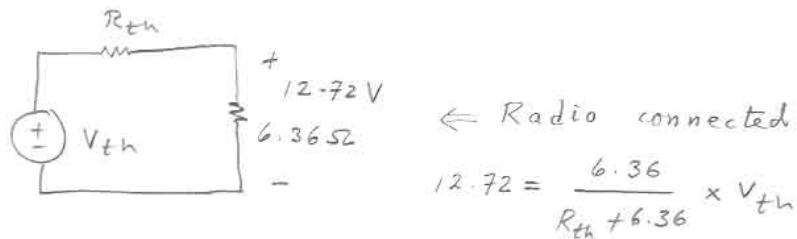 R_th
+
12.72 V
+
-
V_th
6.36Ω
-
⇐ Radio connected
12.72 = 6.36 / (R_th + 6.36) × V_th